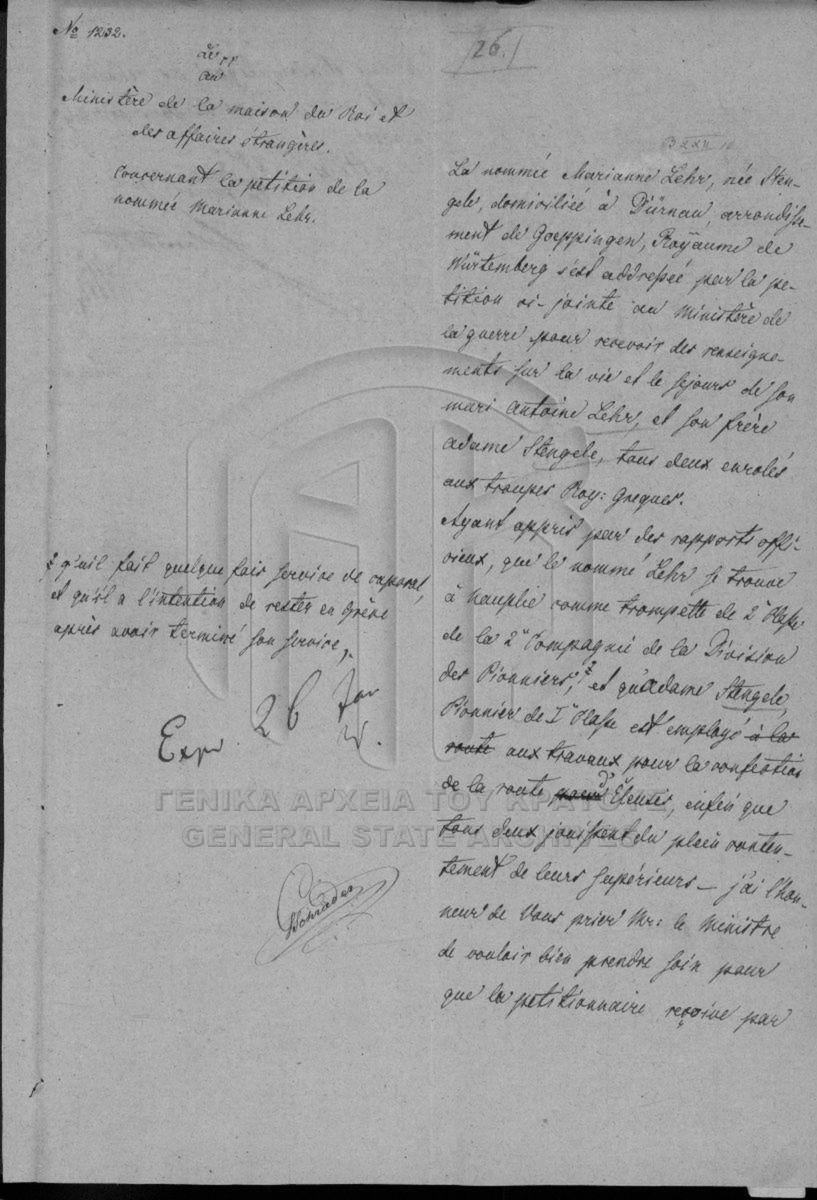 No 1232.
26.
au
Ministère de la maison du Roi et
des affaires étrangères.
Concernant la petition de la
nommée Marianne Lehr.
La nommée Marianne Lehr, née Sten-
gele, domiciliée à Dürnau, arrondisse-
ment de Goeppingen, Royaume de
Würtemberg s'est addressée par la pe-
tition ci-jointe au Ministère de
la guerre pour recevoir des renseigne-
ments sur la vie et le sejours de son
mari Antoine Lehr, et son frère
Adame Stengele, tous deux enrolés
aux troupes Roy: Greques.
Ayant appris par des rapports offi-
cieux, que le nommé Lehr se trouve
à Nauplie comme trompette de 2e Classe
de la 2e Compagnie de la Division
des Pionniers, et qu'Adame Stengele,
Pionnier de Ie Classe est employé à la
route aux travaux pour la confection
de la route d'Eleusis, enfin que
tous deux jouissent du plein conten-
tement de leurs supérieurs — j'ai l'hon-
neur de Vous prier Mr: le Ministre
de vouloir bien prendre soin pour
que la petitionnaire reçoive par
qu'il fait quelque fois service de caporal,
et qu'il a l'intention de rester en Grèce
après avoir terminé son service,
Exp 26 Jan
Schrader
ΓΕΝΙΚΑ ΑΡΧΕΙΑ ΤΟΥ ΚΡΑΤΟΥΣ
GENERAL STATE ARCHIVES